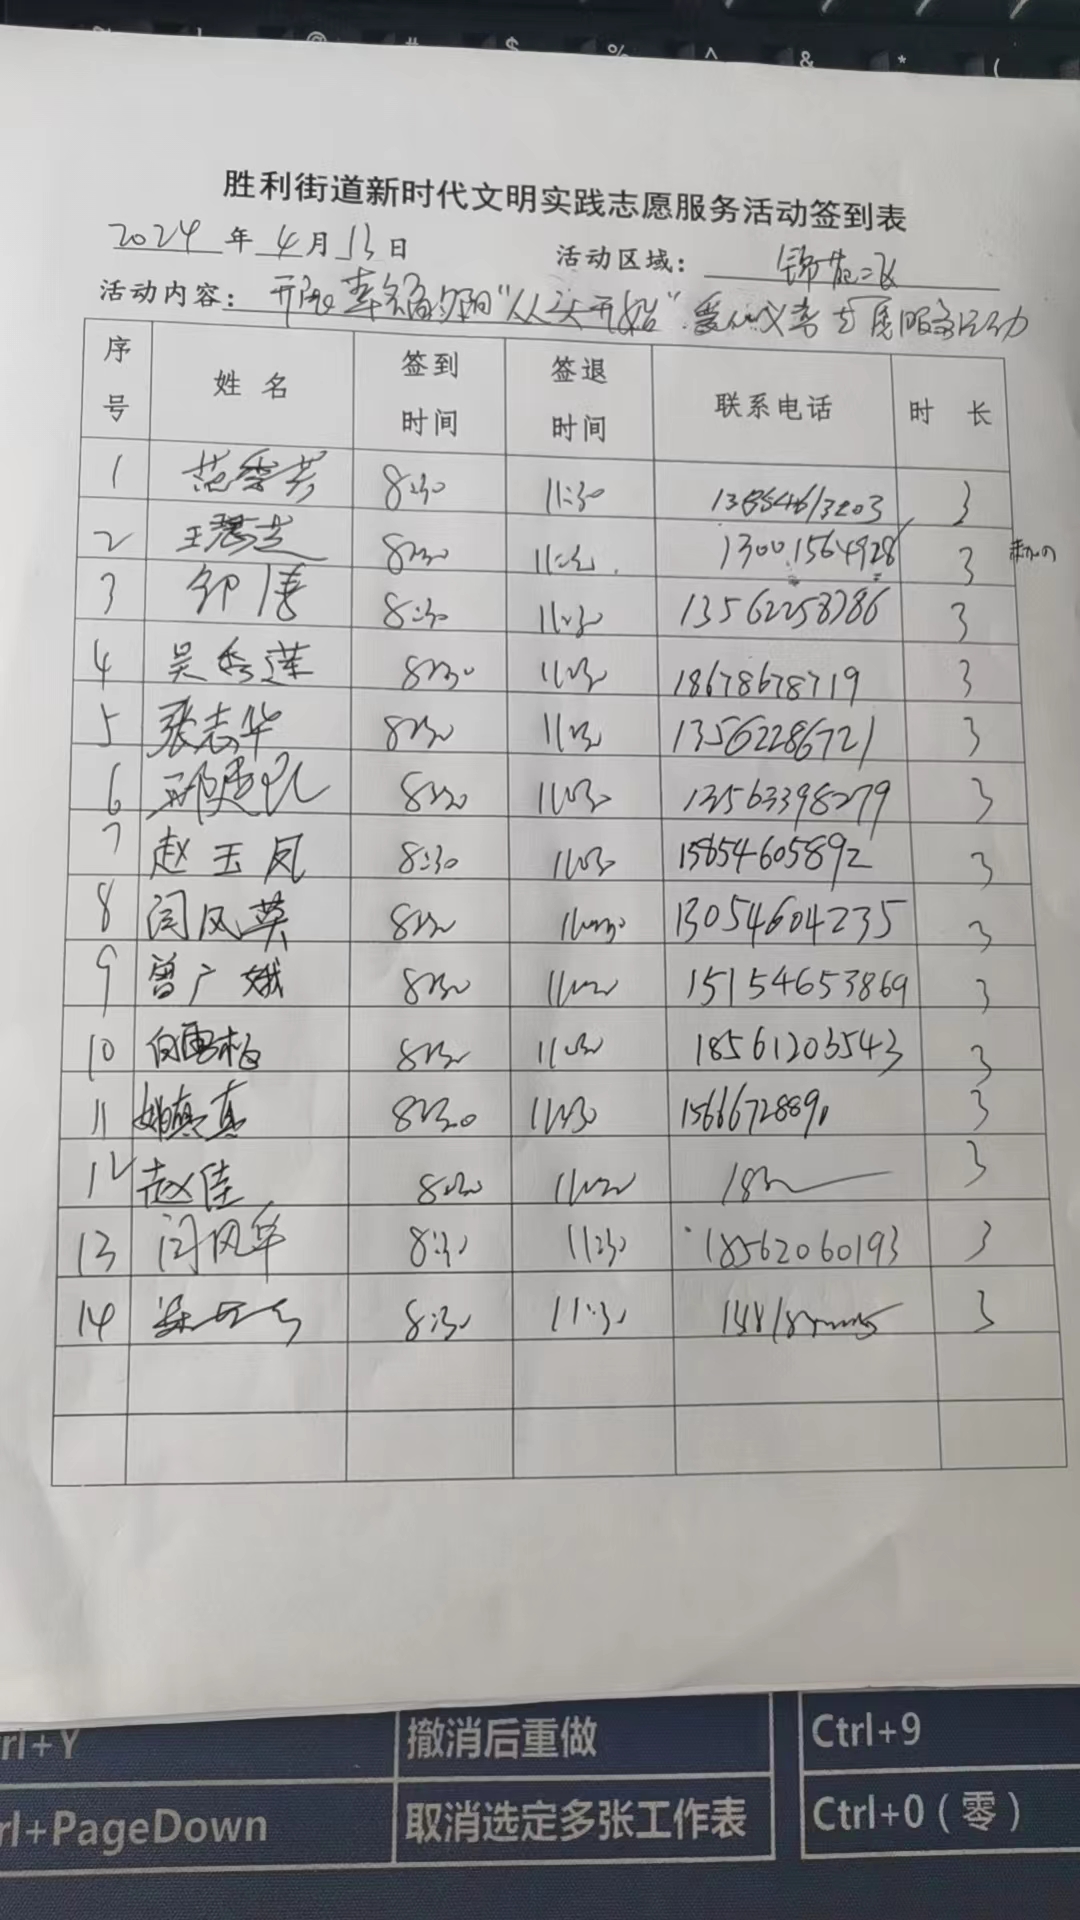 胜利街道新时代文明实践志愿服务活动签到表
2024 年 4 月 13 日 活动区域：
活动内容： "从头开始" 服务活动
序号 姓名 签到时间 签退时间 联系电话 时 长
1 8:30 11:30 3
2 8:30 11:30 13001564928 3
3 8:30 11:30 13562258786 3
4 吴秀莲 8:30 11:30 18678678719 3
5 张志华 8:30 11:30 13562286721 3
6 8:30 11:30 13563398279 3
7 赵玉凤 8:30 11:30 15854605892 3
8 闫凤英 8:30 11:30 13054604235 3
9 曾广娥 8:30 11:30 15154653869 3
10 8:30 11:30 18561203543 3
11 姚真真 8:30 11:30 3
12 赵佳 8:30 11:30 3
13 闫风华 8:30 11:30 18562060193 3
14 8:30 11:30 3
rl+Y 撤消后重做 Ctrl+9
rl+PageDown 取消选定多张工作表 Ctrl+0（零）